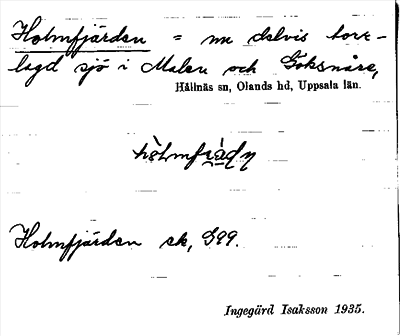 Holmfjärden = nu delvis torr-
lagd sjö i Malen och Goksnåre,
Hållnäs sn, Olands hd, Uppsala län.
Holmfjärden ek, G99.
Ingegärd Isaksson 1935.